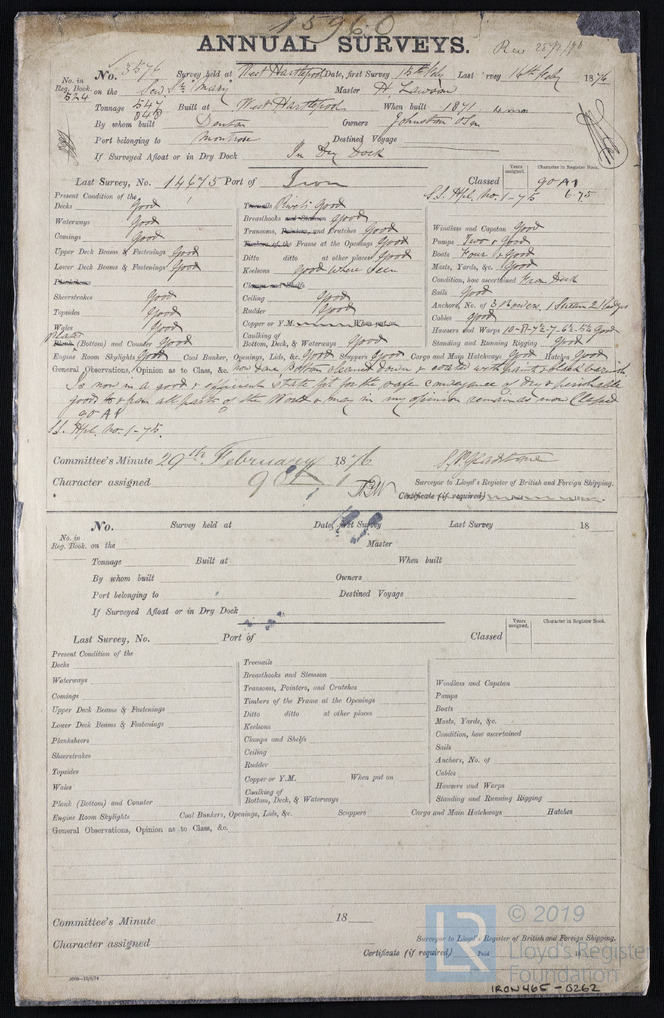 15960
ANNUAL SURVEYS.
Rec 25/2/76
No. 3576 Survey held at West Hartlepool Date, first Survey 15th Feby Last Survey 16th Feby 1876
No. in Reg. Book. 524 on the Sew. Str. Master H. Lawson
Tonnage 547 848 Built at West Hartlepool When built 1871. 4 mo
By whom built Denton Owners Johnston
Port belonging to Montrose Destined Voyage
If Surveyed Afloat or in Dry Dock In Dry Dock
Years assigned. Character in Register Book.
Last Survey, No. 14675 Port of Iron Classed 90 A1
S.S. Hpl. No. 1-75 6.75
Present Condition of the
Decks Good
Waterways Good
Comings Good
Upper Deck Beams & Fastenings Good
Lower Deck Beams & Fastenings Good
Planksheers
Sheerstrakes Good
Topsides Good
Wales Good
Plank (Bottom) and Counter Good
Treenails Rivets Good
Breasthooks and Stemson Good
Transoms, Pointers, and Crutches Good
Timbers of the Frame at the Openings Good
Ditto ditto at other places Good
Keelsons Good where seen
Clamps and Shelfs
Ceiling Good
Rudder Good
Copper or Y.M. When put on
Caulking of Bottom, Deck, & Waterways Good
Windlass and Capstan Good
Pumps Two & Good
Boats Four & Good
Masts, Yards, &c. Good
Condition, how ascertained From Deck
Sails Good
Anchors, No. of 3 Bowers, 1 Stream 2 Kedges
Cables Good
Hawsers and Warps 10-8-7½-7-6½-5½ Good
Standing and Running Rigging Good
Engine Room Skylights Good Coal Bunkers, Openings, Lids, &c. Good Scuppers Good Cargo and Main Hatchways Good Hatches Good
General Observations, Opinion as to Class, &c. Now done Bottom cleaned down & coated with paint & black varnish
Is now in a good & efficient state fit for the safe conveyance of dry & perishable
goods to & from all parts of the World & may in my opinion remain as now Classed
90 A1
S.S. Hpl. No. 1-75.
Committee's Minute 29th February 1876
Character assigned 90 A 1
Surveyor to Lloyd's Register of British and Foreign Shipping.
Certificate (if required)
No. Survey held at Date, first Survey Last Survey 18
No. in Reg. Book. on the Master
Tonnage Built at When built
By whom built Owners
Port belonging to Destined Voyage
If Surveyed Afloat or in Dry Dock
Years assigned. Character in Register Book.
Last Survey, No. Port of Classed
Present Condition of the
Decks
Waterways
Comings
Upper Deck Beams & Fastenings
Lower Deck Beams & Fastenings
Planksheers
Sheerstrakes
Topsides
Wales
Plank (Bottom) and Counter
Treenails
Breasthooks and Stemson
Transoms, Pointers, and Crutches
Timbers of the Frame at the Openings
Ditto ditto at other places
Keelsons
Clamps and Shelfs
Ceiling
Rudder
Copper or Y.M. When put on
Caulking of
Bottom, Deck, & Waterways
Windlass and Capstan
Pumps
Boats
Masts, Yards, &c.
Condition, how ascertained
Sails
Anchors, No. of
Cables
Hawsers and Warps
Standing and Running Rigging
Engine Room Skylights Coal Bunkers, Openings, Lids, &c. Scuppers Cargo and Main Hatchways Hatches
General Observations, Opinion as to Class, &c.
Committee's Minute 18
Character assigned
Surveyor to Lloyd's Register of British and Foreign Shipping.
Certificate (if required)
LR © 2019
Lloyd's Register
Foundation
IRON465-0262